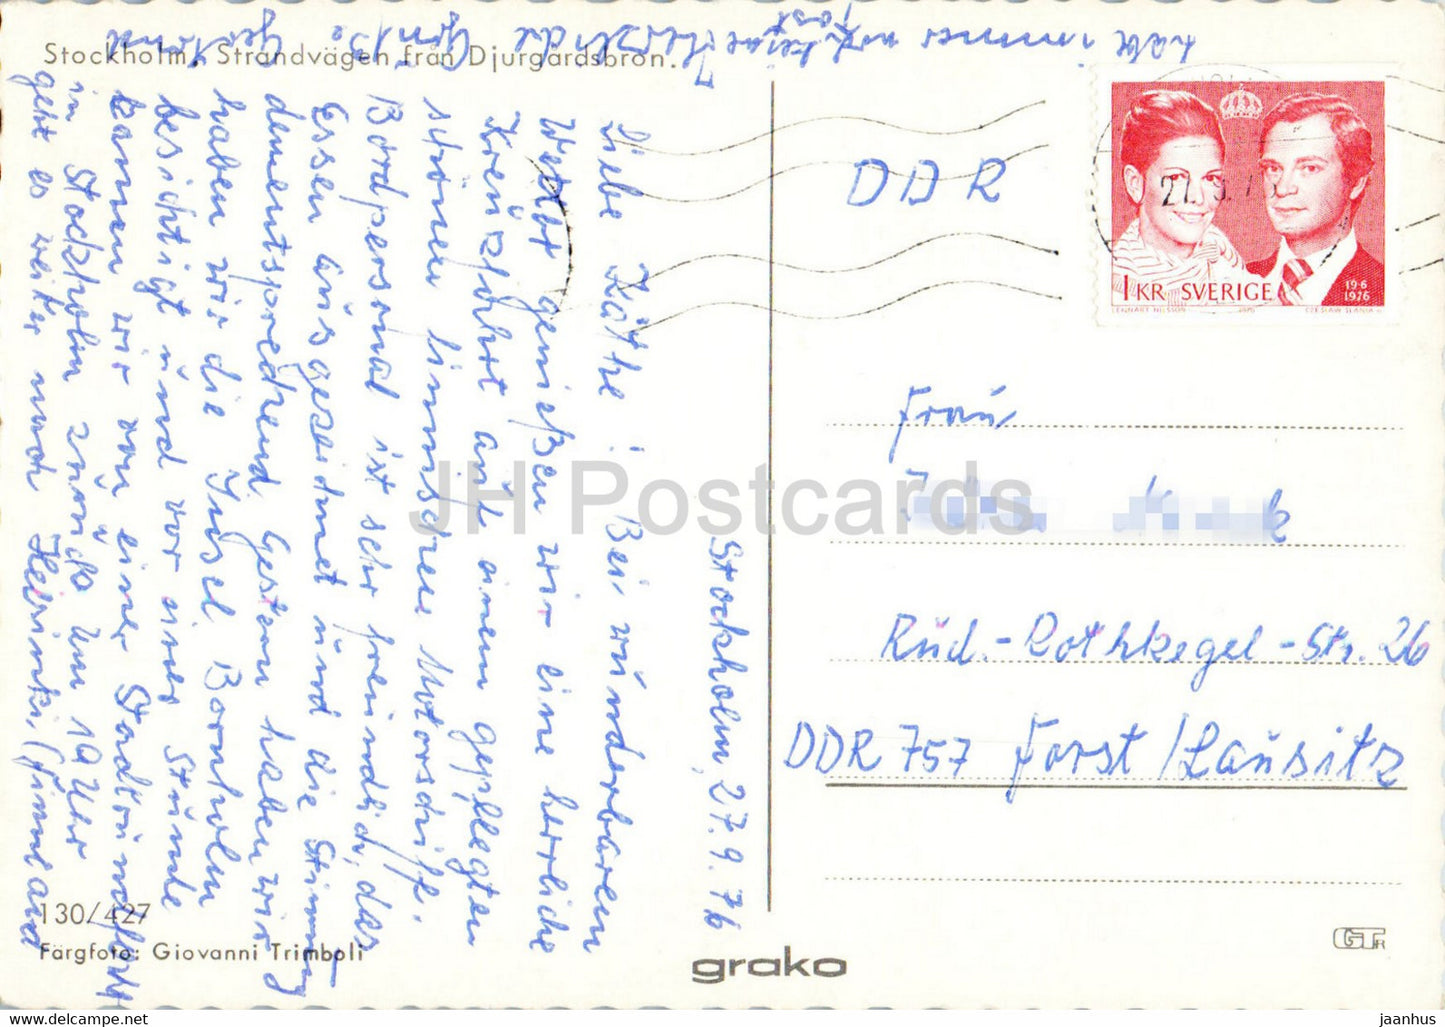 Stockholm. Strandvägen från Djurgårdsbron.
Stockholm, 27.9.76
Liebe Käthe! Bei wunderbaren
genießen wir eine herrliche
Kreuzfahrt auf einem gepflegten
schönen finnischen Motorschiff.
Bordpersonal ist sehr freundlich, das
Essen ausgezeichnet und die Stimmung
dementsprechend. Gestern haben wir
haben wir die Insel Bornholm
besichtigt und vor einer Stunde
kamen wir von einer Stadtrundfahrt
in Stockholm zurück. Um 19 Uhr
geht es weiter nach Helsinki, (Finnland
Herzliche Grüße
Gertrud
habe immer noch keine
Post
DDR
1 KR SVERIGE
19·6
1976
LENNART NILSSON 1976 CZESLAW SLANIA sc
27.9.7
Frau
Rud.-Rothkegel-Str. 26
DDR 757 Forst/Lausitz
JH Postcards
130/427
Färgfoto: Giovanni Trimboli
grako
jaanhus